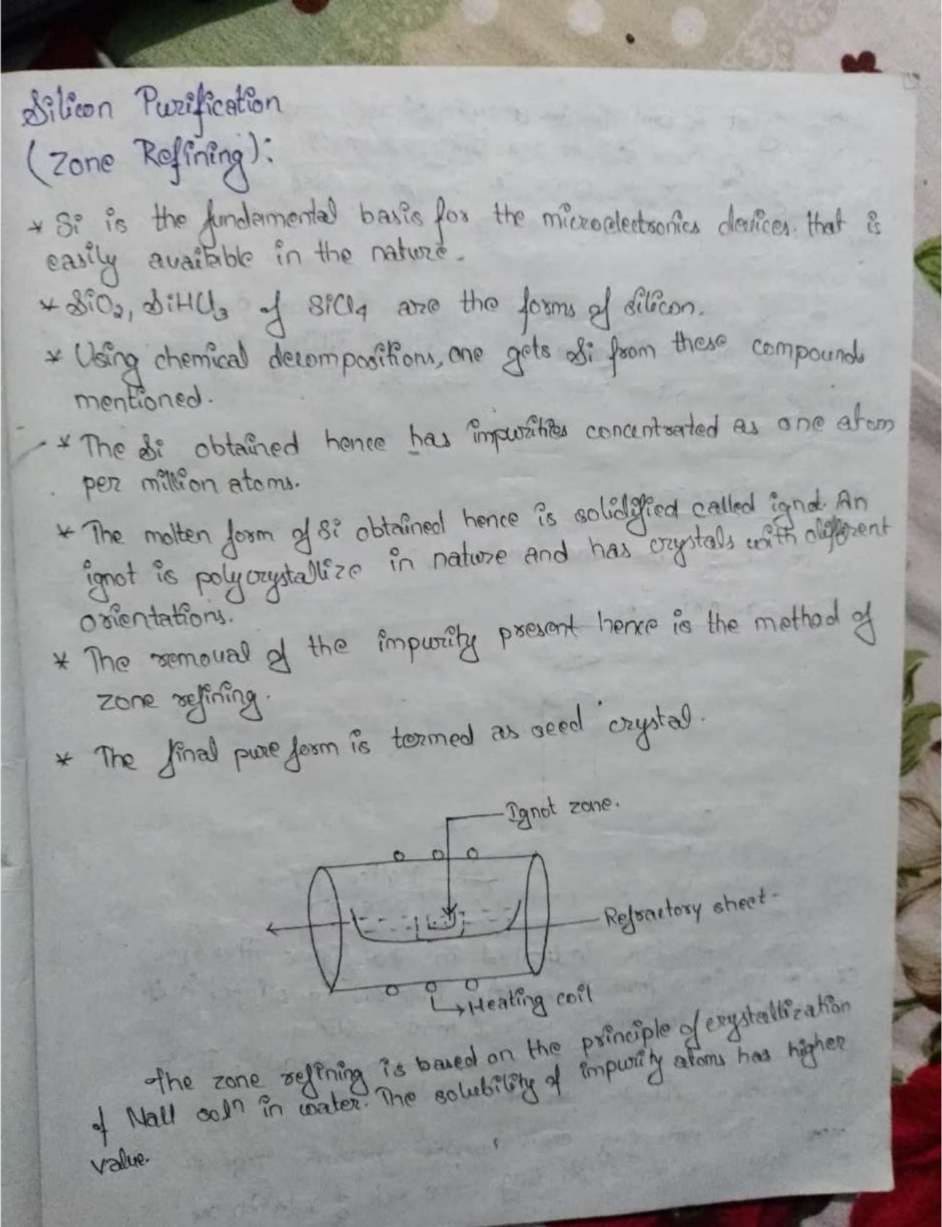 Silicon Purification
(Zone Refining):
* Si is the fundamental basis for the microelectronics devices. that is
easily availabble in the nature.
* SiO2, SiHCl3 & SiCl4 are the forms of silicon.
* Using chemical decompositions, one gets Si from these compounds
mentioned.
* The Si obtained hence has impurities concentrated as one atom
per million atoms.
* The molten form of Si obtained hence is solidified called ignot. An
ignot is polycrystallize in nature and has crystals with different
orientations.
* The removal of the impurity present hence is the method of
zone refining.
* The final pure form is termed as seed crystal.
Ignot zone.
Refractory sheet.
Heating coil
The zone refining is based on the principle of crystallization
of Nacl soln in water. The solubility of impurity atoms has higher
value.